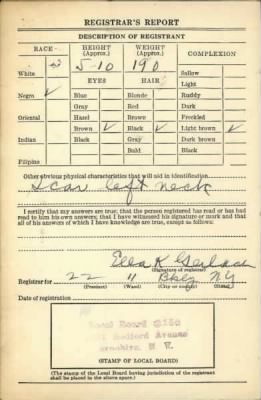 REGISTRAR'S REPORT
DESCRIPTION OF REGISTRANT
RACE HEIGHT (Approx.) WEIGHT (Approx.) COMPLEXION
White 5-10 190 Sallow
Light
EYES HAIR
Negro ✓ Blue Blonde Ruddy
Gray Red Dark
Oriental Hazel Brown Freckled
Brown ✓ Black ✓ Light brown ✓
Indian Black Gray Dark brown
Bald Black
Filipino
Other obvious physical characteristics that will aid in identification
Scar left neck
I certify that my answers are true; that the person registered has read or has had
read to him his own answers; that I have witnessed his signature or mark and that
all of his answers of which I have knowledge are true, except as follows:
Ella K Gerlach
(Signature of registrar)
Registrar for 22 11 Bkly NY
(Precinct) (Ward) (City or county)
Date of registration
Local Board
Bedford Avenue
Brooklyn, N. Y.
(STAMP OF LOCAL BOARD)
(The stamp of the Local Board having jurisdiction of the registrant
shall be placed in the above space.)